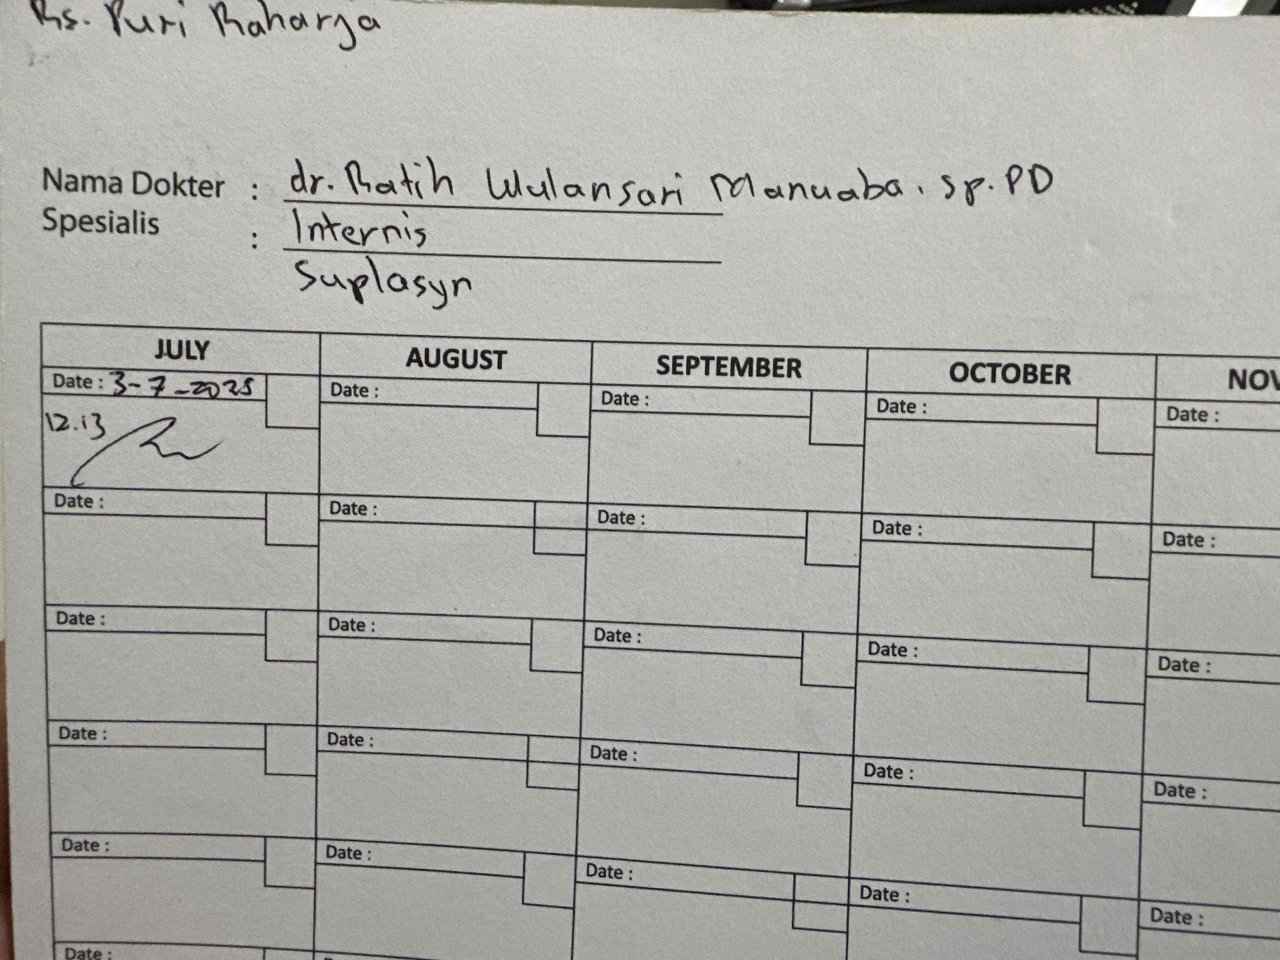 Rs. Puri Raharja
Nama Dokter : dr. Ratih Wulansari Manuaba. Sp.PD
Spesialis : Internis
Suplasyn
JULY AUGUST SEPTEMBER OCTOBER NOV
Date : 3-7-2025 Date : Date : Date : Date :
12.13
Date : Date : Date : Date : Date :
Date : Date : Date : Date : Date :
Date : Date : Date : Date : Date :
Date : Date : Date : Date : Date :
Date :